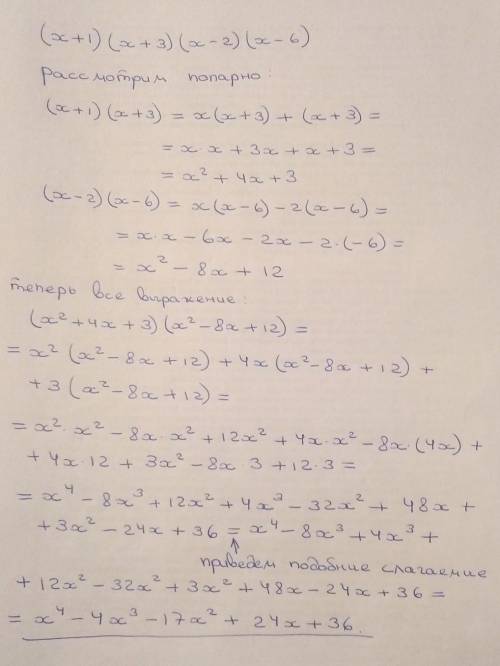 (x+1)(x+3)(x-2)(x-6)
Рассмотрим попарно:
(x+1)(x+3) = x(x+3) + (x+3) =
= x·x + 3x + x + 3 =
= x² + 4x + 3
(x-2)(x-6) = x(x-6) - 2(x-6) =
= x·x - 6x - 2x - 2·(-6) =
= x² - 8x + 12
теперь все выражение:
(x² + 4x + 3)(x² - 8x + 12) =
= x² (x² - 8x + 12) + 4x (x² - 8x + 12) +
+ 3 (x² - 8x + 12) =
= x²·x² - 8x·x² + 12x² + 4x·x² - 8x·(4x) +
+ 4x·12 + 3x² - 8x·3 + 12·3 =
= x⁴ - 8x³ + 12x² + 4x³ - 32x² + 48x +
+ 3x² - 24x + 36 = x⁴ - 8x³ + 4x³ +
приведем подобные слагаемые
+ 12x² - 32x² + 3x² + 48x - 24x + 36 =
= x⁴ - 4x³ - 17x² + 24x + 36.